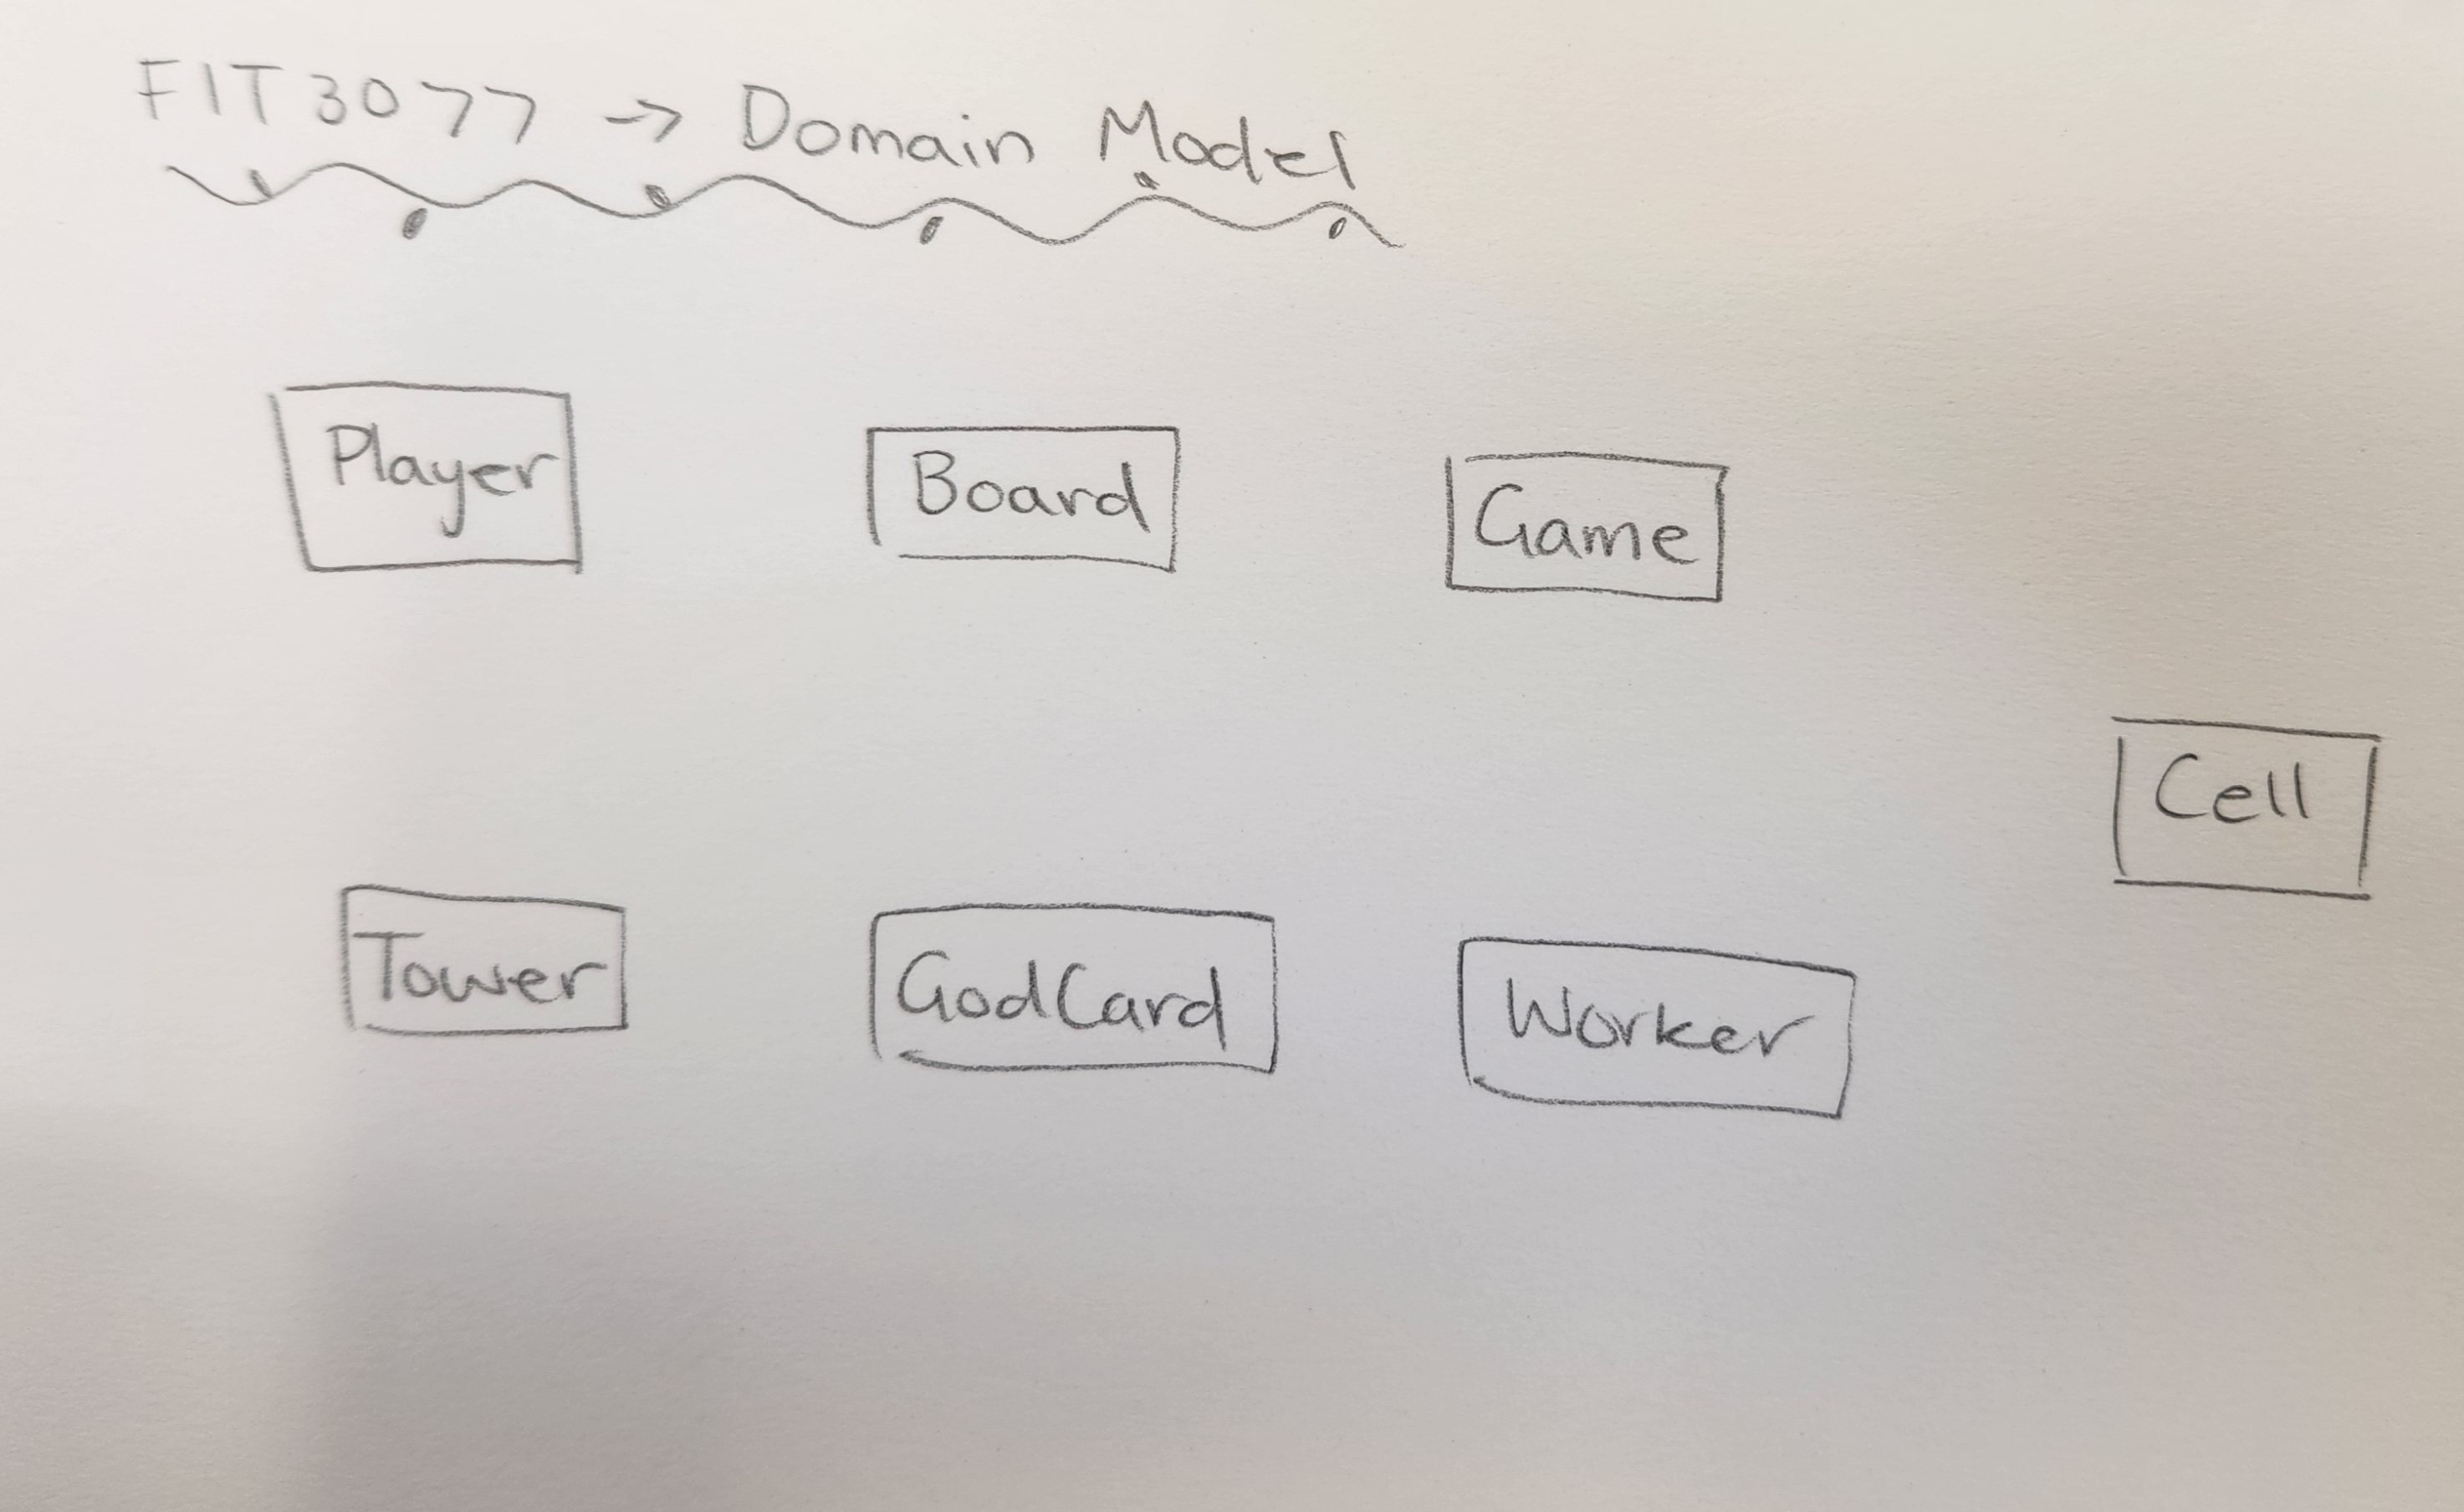 FIT3077 -> Domain Model
Player
Board
Game
Cell
Tower
GodCard
Worker